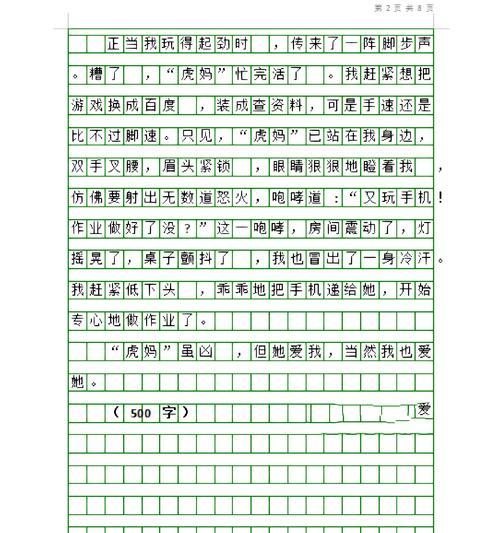 第 2 页 共 8 页
正当我玩得起劲时，传来了一阵脚步声
。糟了，“虎妈”忙完活了。我赶紧想把
游戏换成百度，装成查资料，可是手速还是
比不过脚速。只见，“虎妈”已站在我身边，
双手叉腰，眉头紧锁，眼睛狠狠地瞪着我，
仿佛要射出无数道怒火，咆哮道：“又玩手机！
作业做好了没？”这一咆哮，房间震动了，灯
摇晃了，桌子颤抖了，我也冒出了一身冷汗。
我赶紧低下头，乖乖地把手机递给她，开始
专心地做作业了。
“虎妈”虽凶，但她爱我，当然我也爱
她。
（500 字） 爱